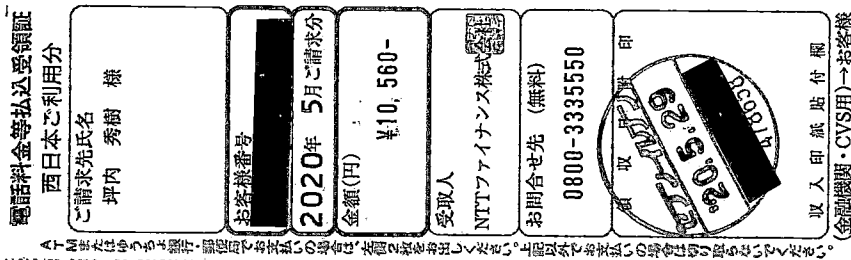 電話料金等払込受領証
西日本ご利用分
ご請求先氏名
坪内 秀樹 様
お客様番号
2020年 5月ご請求分
金額(円)
¥10,560-
受取人
NTTファイナンス株式会社
お問合せ先 (無料)
0800-3335550
領収日附印
セブン-イレブン
'20.5.29
418638
収入印紙貼付欄
(金融機関・CVS用)→お客様
ATMまたはゆうちょ銀行・郵便局でお支払いの場合は、左側2枚をお出しください。上記以外でお支払いの場合は切り取らないでください。